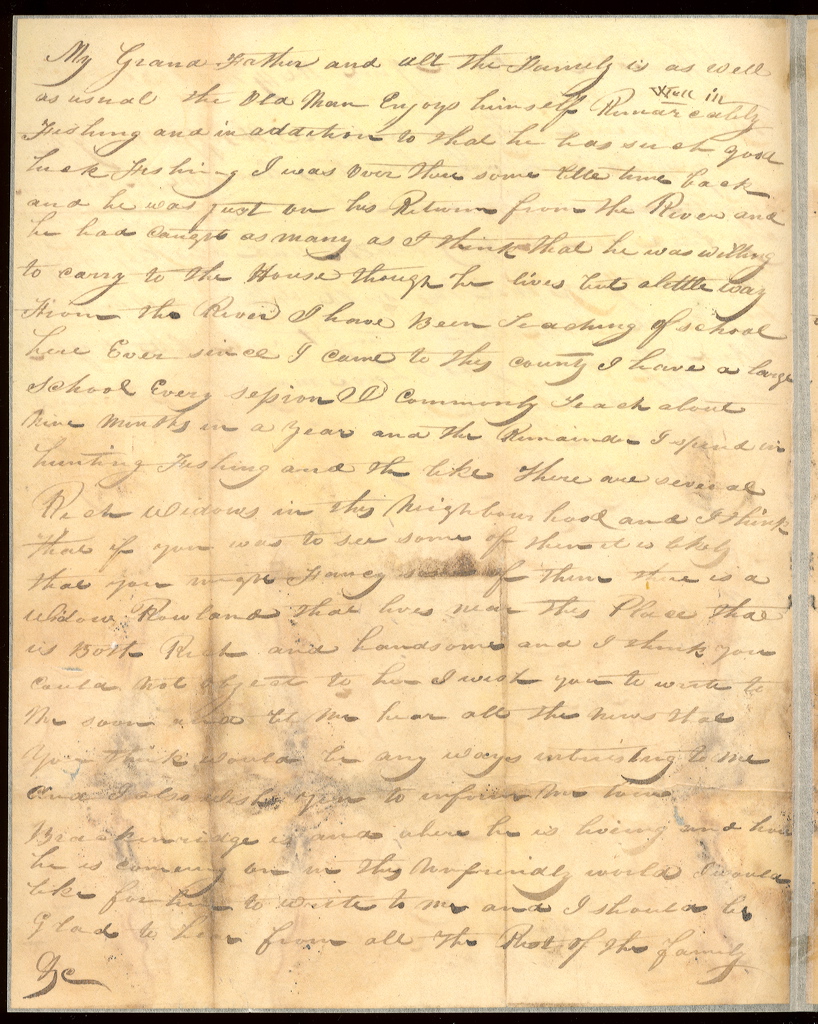 My Grand Father and all the Family is as well
as usual the Old Man Enjoys himself Remarcably Well in
Fishing and in addition to that he has such good
luck Fishing I was over thur some little time back
and he was just on his Return from the River and
he had caught as many as I think that he was willing
to carry to the House though he lives but a little way
From the River I have Been Teaching of school
here Ever since I came to this county I have a large
School Every session I Commonly Teach about
Nine Months in a year and the Remainder I spend in
hunting Fishing and the like There are several
Rich widows in this Neighbourhood and I think
that if you was to see some of them it is likely
that you might Fancy some of them there is a
widow Rowland that lives near this Place that
is Both Rich and handsome and I think you
could not object to her I wish you to write to
Me soon and let me hear all the news that
You think would be any ways intresting to me
and I also wish you to inform me
Brackinridge is and where he is living and how
he is comeing on in this unfriendly world I would
like for him to write to me and I should be
Glad to hear from all the Rest of the family
&c